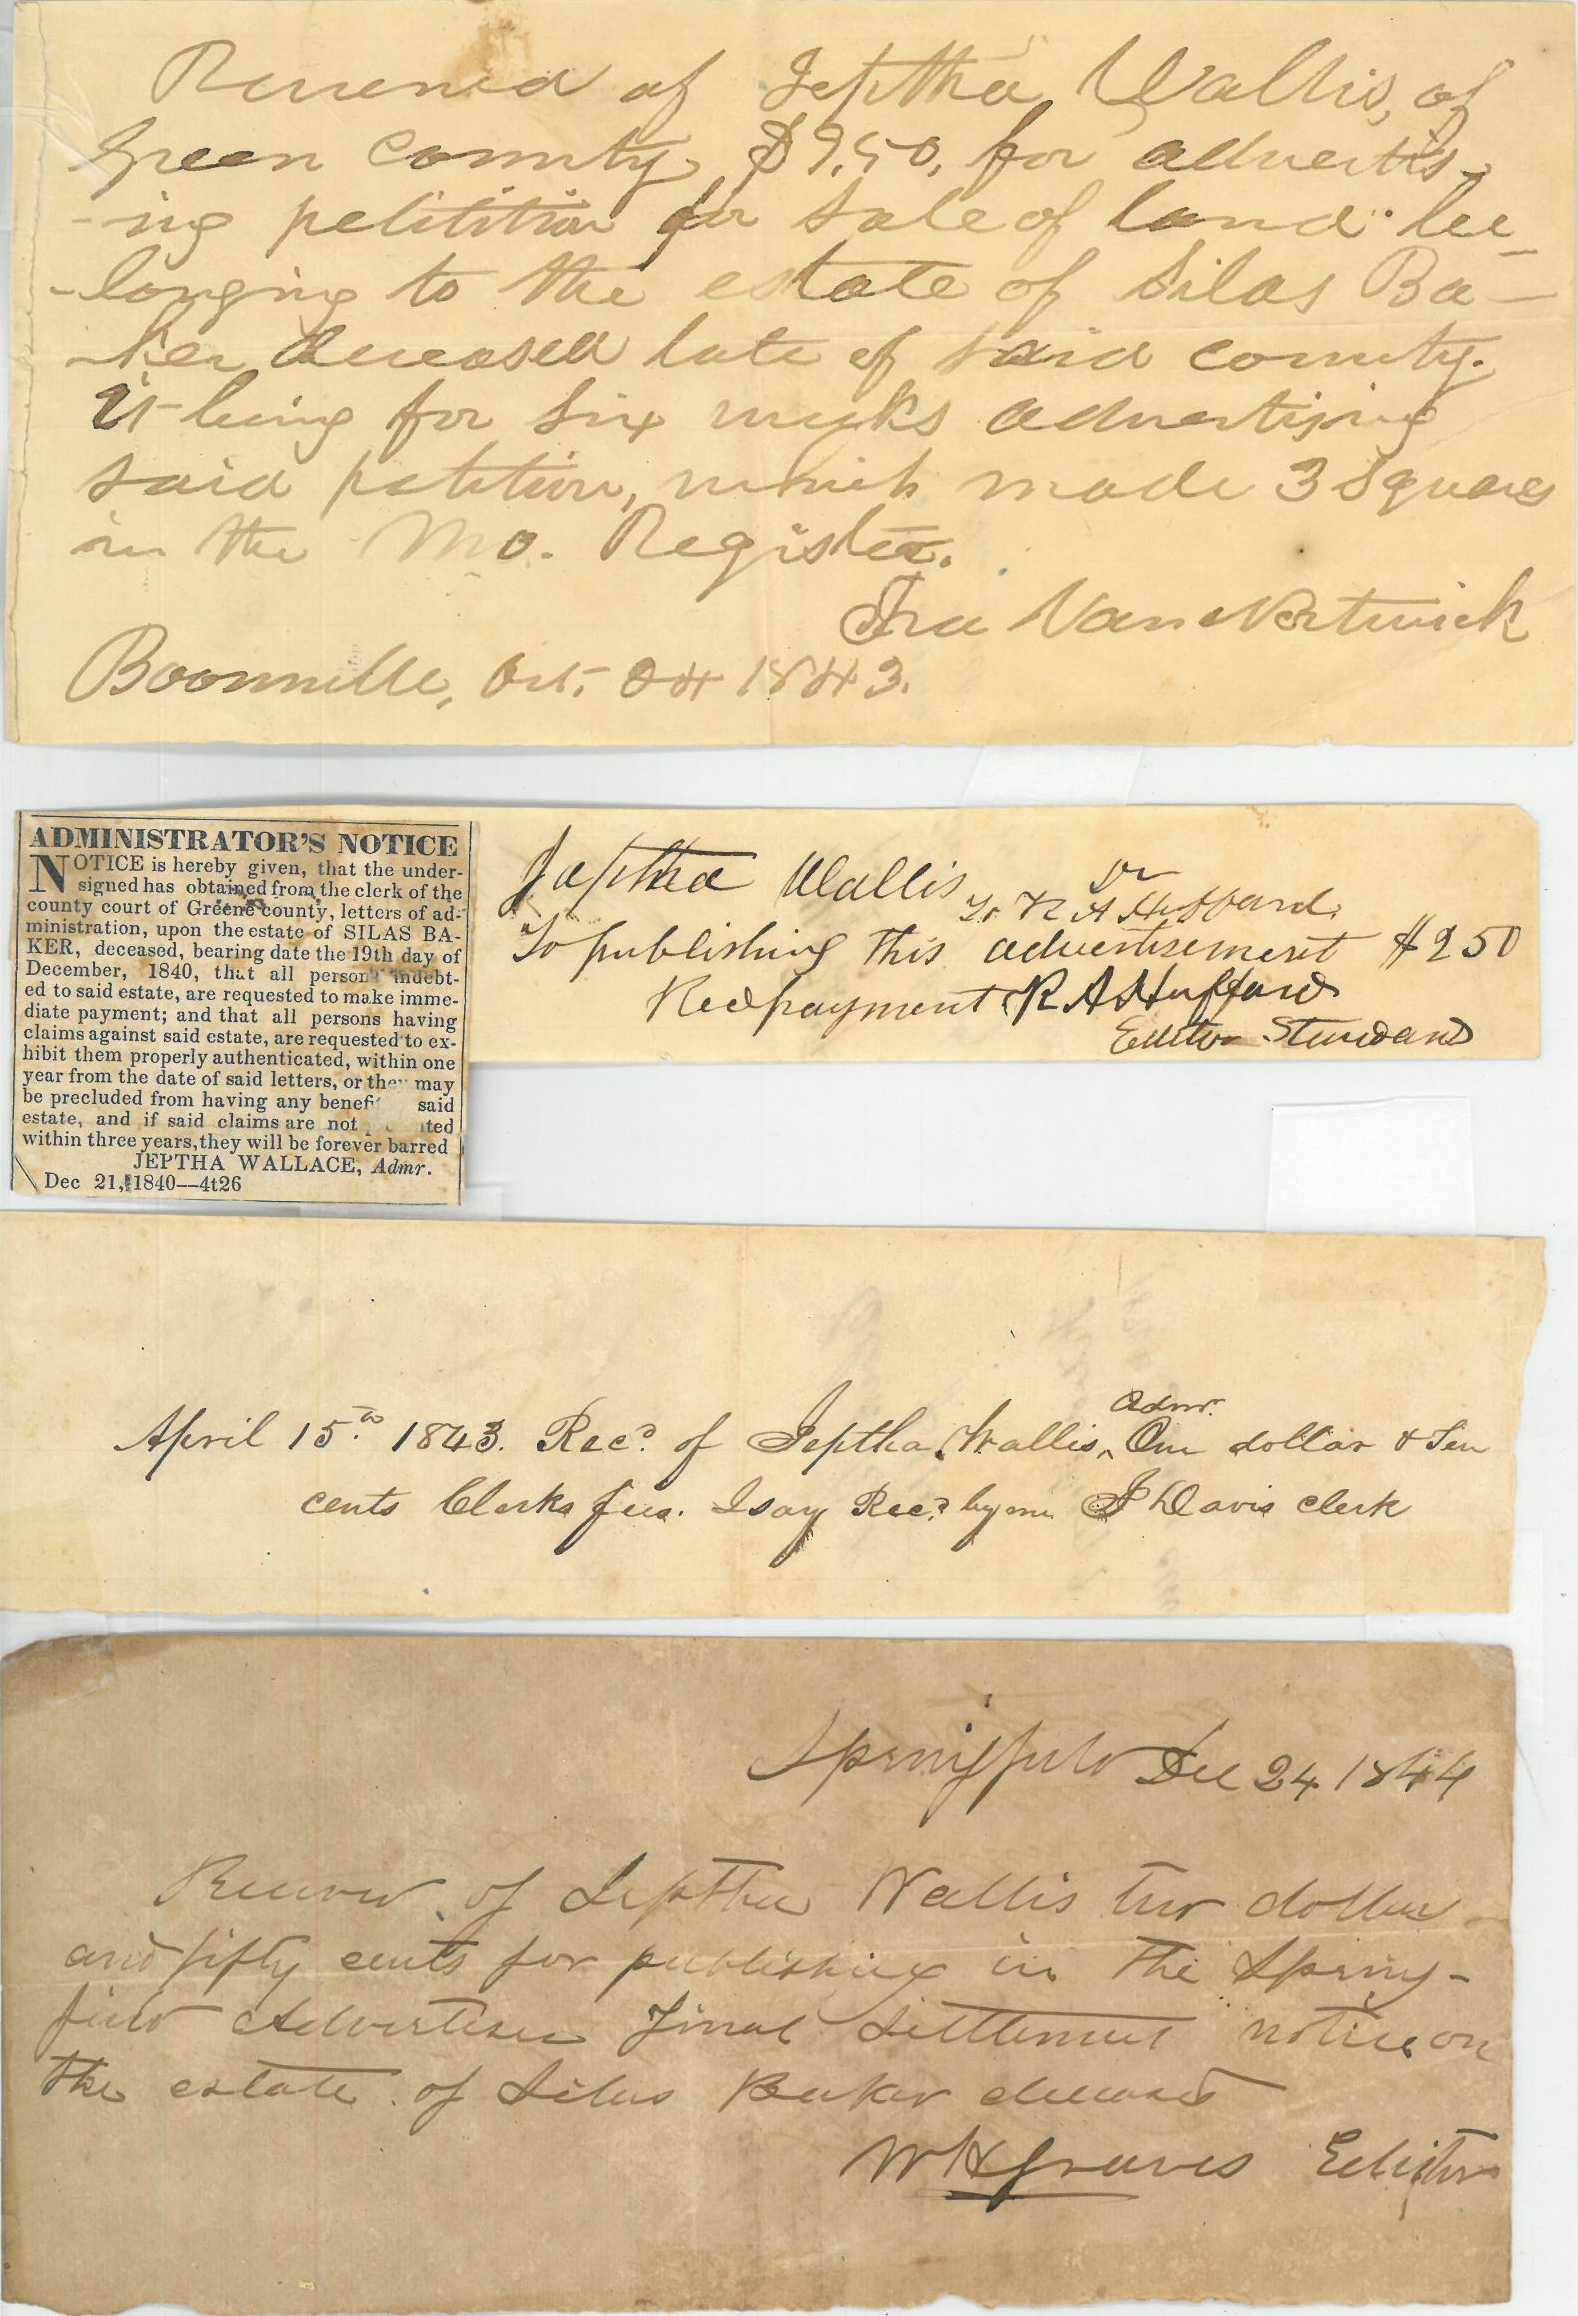 Received of Jeptha Wallis, of
Green County $9.50, for advertis-
-ing petitition for sale of land be-
-longing to the estate of Silas Ba-
-ker deceased late of said county.
It being for six weeks advertising
said petition, which made 3 squares
in the Mo. Register.
Ira Van Nortwick
Boonville, Oct. 24 1843.
ADMINISTRATOR'S NOTICE
NOTICE is hereby given, that the under-
signed has obtained from the clerk of the
county court of Greene county, letters of ad-
ministration, upon the estate of SILAS BA-
KER, deceased, bearing date the 19th day of
December, 1840, that all persons indebt-
ed to said estate, are requested to make imme-
diate payment; and that all persons having
claims against said estate, are requested to ex-
hibit them properly authenticated, within one
year from the date of said letters, or they may
be precluded from having any benefit said
estate, and if said claims are not ted
within three years, they will be forever barred
JEPTHA WALLACE, Admr.
Dec 21, 1840—4t26
Jeptha Wallis Dr
To R A Huffard
To publishing this advertisement $2 50
Recd payment R A Huffard
Editor Standard
April 15th 1843. Recd. of Jeptha Wallis, Admr. One dollar & Ten
cents Clerks fees. I say Recd. by me J Davis clerk
Springfield Dec 24 1844
Received of Jeptha Wallis two dollars
and fifty cents for publishing in the Spring-
field Advertiser final Settlement notice on
the estate of Silas Baker deceased
W H Graves Editor